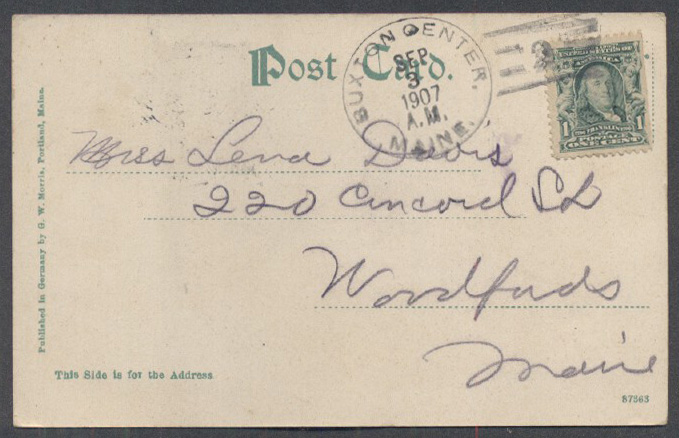 Post Card.
BUXTON CENTER,
SEP
3
1907
A.M.
MAINE.
1
FRANKLIN
1
POSTAGE
ONE CENT
Miss Lena Davis
220 Concord St
Woodfords
Maine
Published in Germany by G. W. Morris, Portland, Maine.
This Side is for the Address
87563